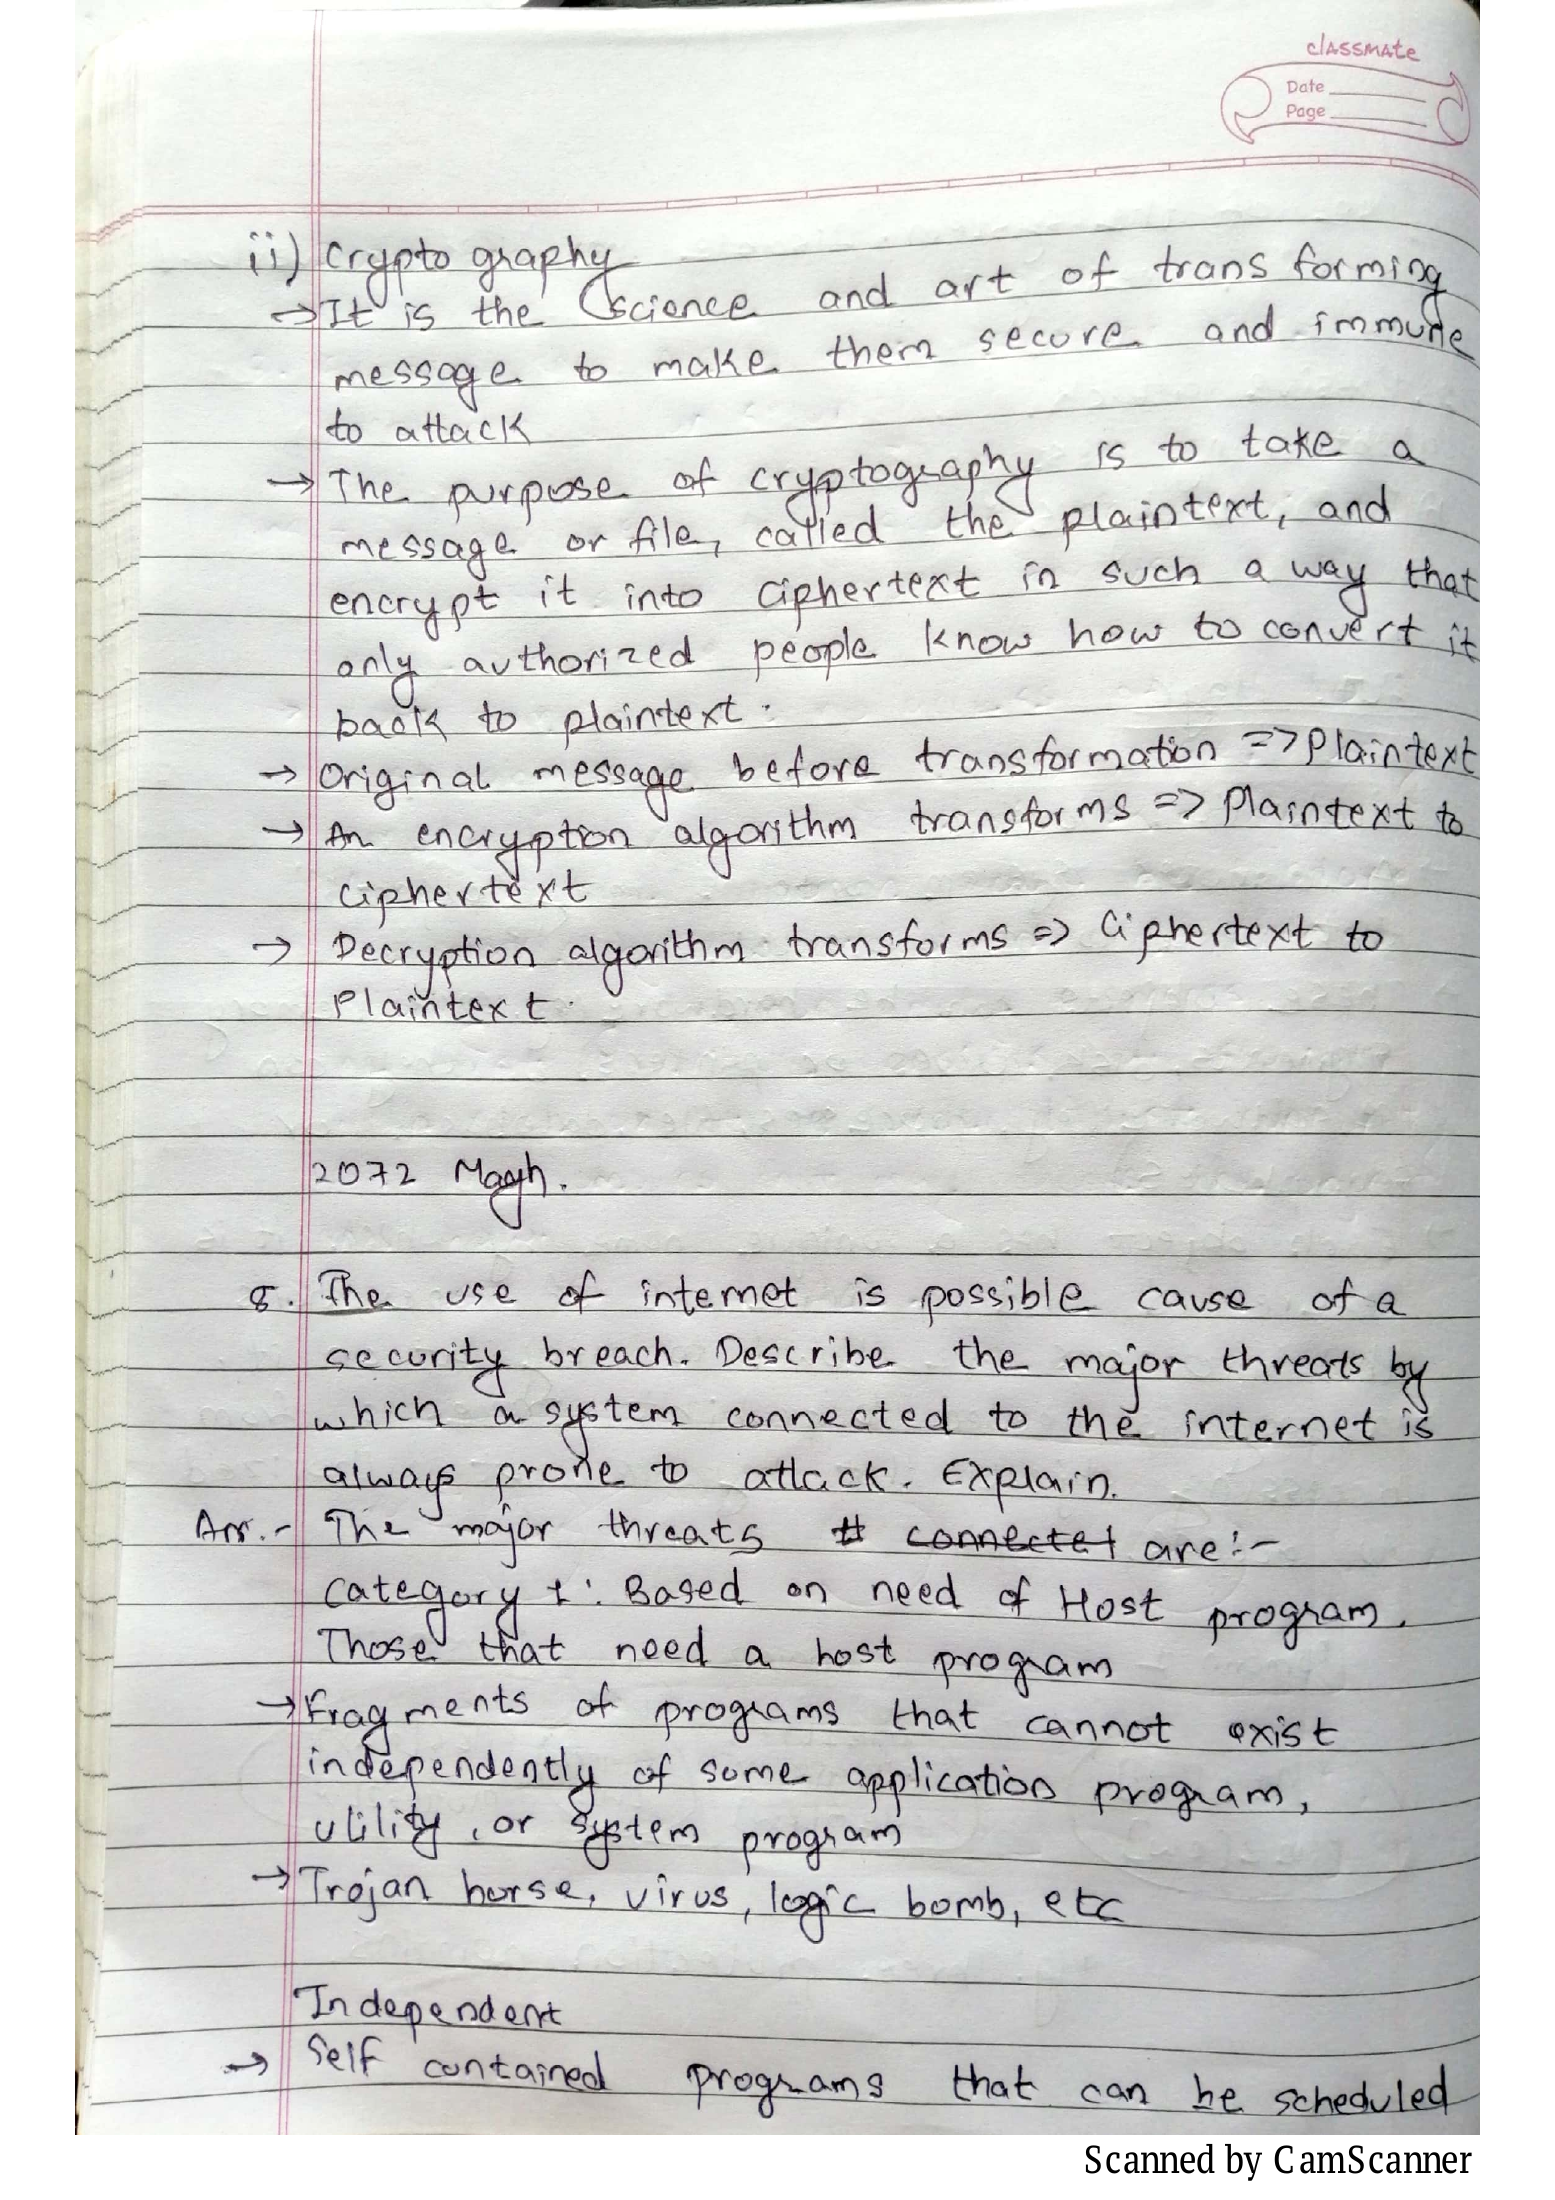 classmate
Date
Page
ii) Cryptography
→ It is the science and art of transforming
message to make them secure and immune
to attack
→ The purpose of cryptography is to take a
message or file, called the plaintext, and
encrypt it into ciphertext in such a way that
only authorized people know how to convert it
back to plaintext.
→ Original message before transformation => Plaintext
→ An encryption algorithm transforms => Plaintext to
ciphertext
→ Decryption algorithm transforms => Ciphertext to
Plaintext.
2072 Magh.
8. The use of internet is possible cause of a
security breach. Describe the major threats by
which a system connected to the internet is
always prone to attack. Explain.
Ans.- The major threats connected are:-
Category 1: Based on need of Host program.
Those that need a host program
→ Fragments of programs that cannot exist
independently of some application program,
utility, or system program
→ Trojan horse, virus, logic bomb, etc
Independent
→ Self contained programs that can be scheduled
Scanned by CamScanner